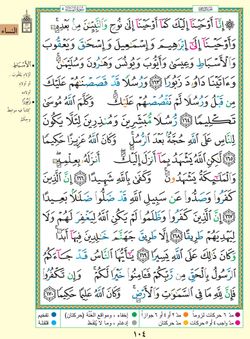 إِنَّا أَوْحَيْنَا إِلَيْكَ كَمَا أَوْحَيْنَا إِلَىٰ نُوحٍ وَالنَّبِيِّينَ مِنْ بَعْدِهِ
وَأَوْحَيْنَا إِلَىٰ إِبْرَاهِيمَ وَإِسْمَاعِيلَ وَإِسْحَاقَ وَيَعْقُوبَ
وَالْأَسْبَاطِ وَعِيسَىٰ وَأَيُّوبَ وَيُونُسَ وَهَارُونَ وَسُلَيْمَانَ
وَآتَيْنَا دَاوُودَ زَبُورًا ١٦٣ وَرُسُلًا قَدْ قَصَصْنَاهُمْ عَلَيْكَ
مِنْ قَبْلُ وَرُسُلًا لَمْ نَقْصُصْهُمْ عَلَيْكَ وَكَلَّمَ اللَّهُ مُوسَىٰ
تَكْلِيمًا ١٦٤ رُسُلًا مُبَشِّرِينَ وَمُنْذِرِينَ لِئَلَّا يَكُونَ
لِلنَّاسِ عَلَى اللَّهِ حُجَّةٌ بَعْدَ الرُّسُلِ وَكَانَ اللَّهُ عَزِيزًا حَكِيمًا
١٦٥ لَٰكِنِ اللَّهُ يَشْهَدُ بِمَا أَنْزَلَ إِلَيْكَ أَنْزَلَهُ بِعِلْمِهِ
وَالْمَلَائِكَةُ يَشْهَدُونَ وَكَفَىٰ بِاللَّهِ شَهِيدًا ١٦٦ إِنَّ الَّذِينَ
كَفَرُوا وَصَدُّوا عَنْ سَبِيلِ اللَّهِ قَدْ ضَلُّوا ضَلَالًا بَعِيدًا
١٦٧ إِنَّ الَّذِينَ كَفَرُوا وَظَلَمُوا لَمْ يَكُنِ اللَّهُ لِيَغْفِرَ لَهُمْ وَلَا
لِيَهْدِيَهُمْ طَرِيقًا ١٦٨ إِلَّا طَرِيقَ جَهَنَّمَ خَالِدِينَ فِيهَا أَبَدًا
وَكَانَ ذَٰلِكَ عَلَى اللَّهِ يَسِيرًا ١٦٩ يَا أَيُّهَا النَّاسُ قَدْ جَاءَكُمُ
الرَّسُولُ بِالْحَقِّ مِنْ رَبِّكُمْ فَآمِنُوا خَيْرًا لَكُمْ وَإِنْ تَكْفُرُوا
فَإِنَّ لِلَّهِ مَا فِي السَّمَاوَاتِ وَالْأَرْضِ وَكَانَ اللَّهُ عَلِيمًا حَكِيمًا ١٧٠
النساء
الأسباط
زبورا
مد ٦ حركات لزوماً
مد ٢ أو ٤ أو ٦ جوازاً
إخفاء، ومواقع الغنة (حركتان)
تفخيم
مد واجب ٤ أو ٥ حركات
مد حركتان
إدغام، وما لا يلفظ
قلقلة
١٠٤